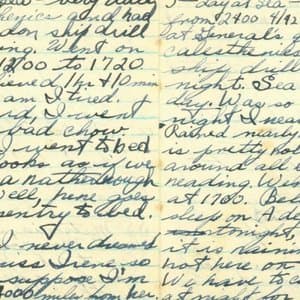 very daily
and had
don ship drill
ing. Went on
1200 to 1720
ieved 1 hr + 10 min
am I tired.
rd, I went
bad chow.
I went to bed
ooks as if we
a rather rough
Well, here goes
entry to bed.
I never dreamed
miss Irene so
suppose I'm
miles from her,
5 day at sea
from 2400
at General's
calesthenics
ship drill
night. Sea
day. Was so
night I near
Rained nearly
is pretty hot
around all
reading. We
at 1700. Be
sleep on A de
tonight,
it is raining
hot here on
We have to